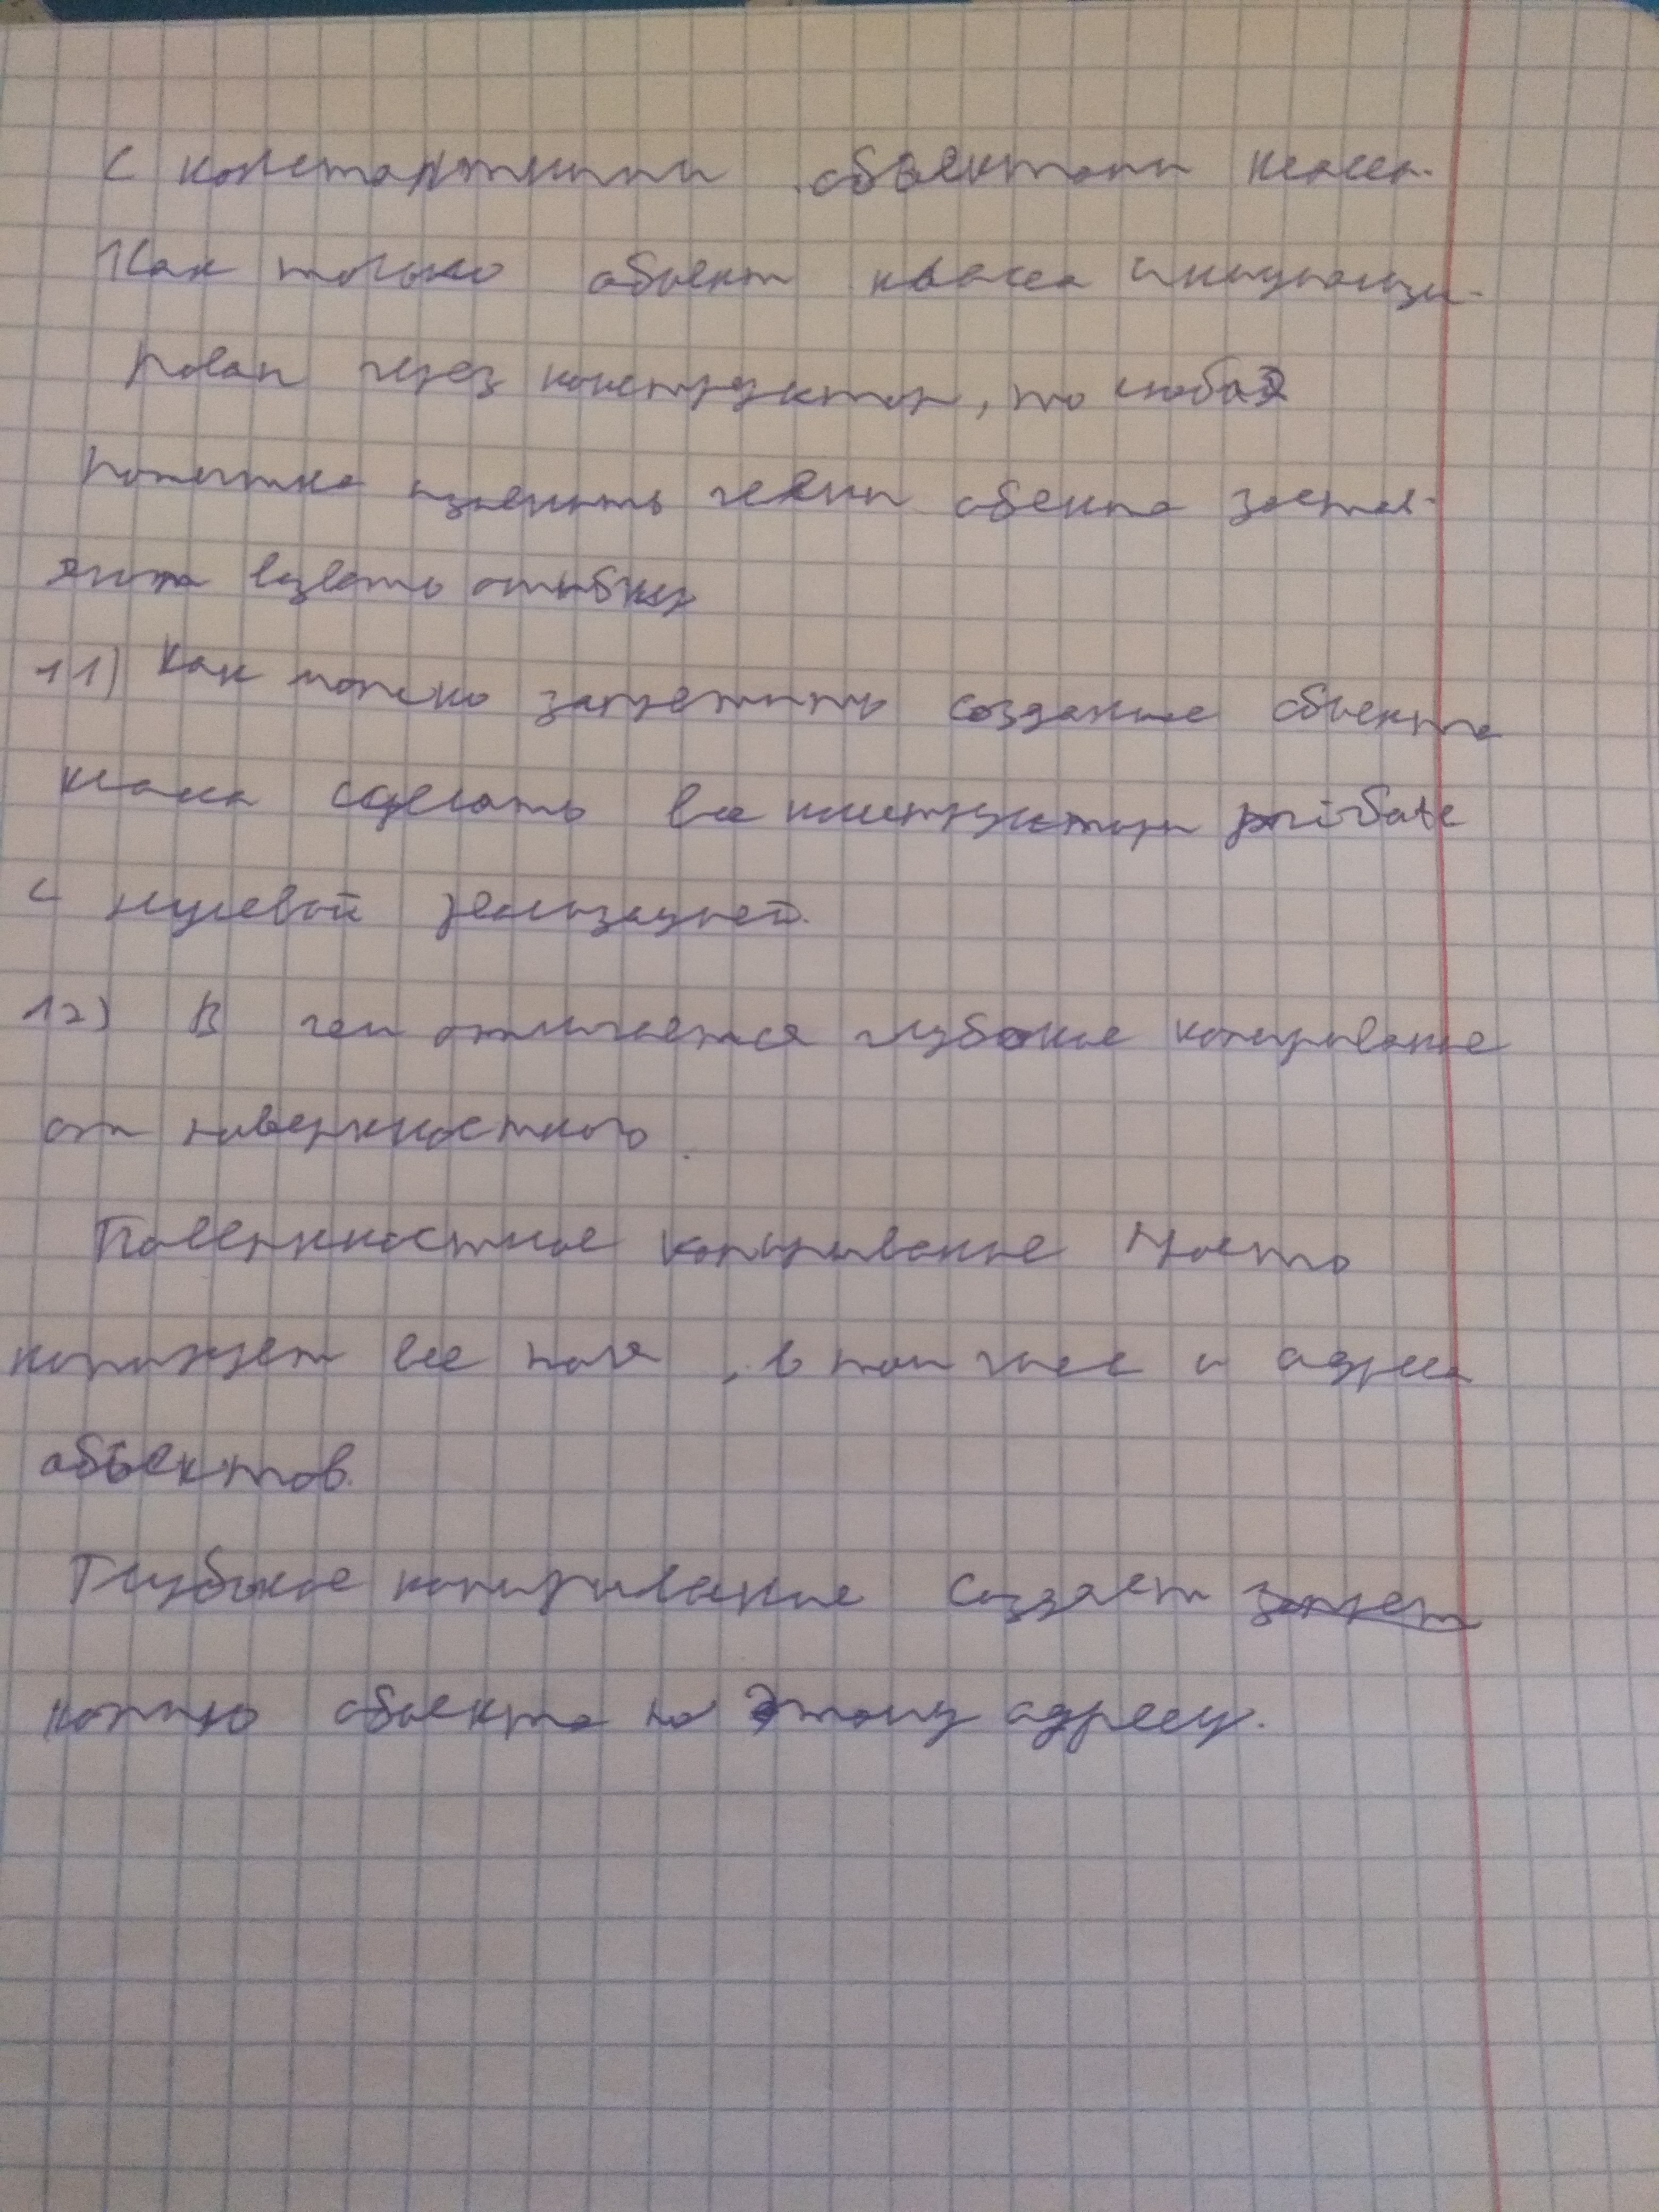 С константными объектами класса.
Как только объект класса инициализи-
рован через конструктор, то любая
попытка изменить члены обекта
вызвать ошибку
11) Как можно запретить создание объекта
класса сделать все конструкторы private
с нулевой реализацией.
12) В чем отличается глубокое копирование
от поверхностного.
Поверхностное копирование просто
копирует все поля, в том числе и адреса
объектов.
Глубокое копирование создает
копию объекта по этому адресу.